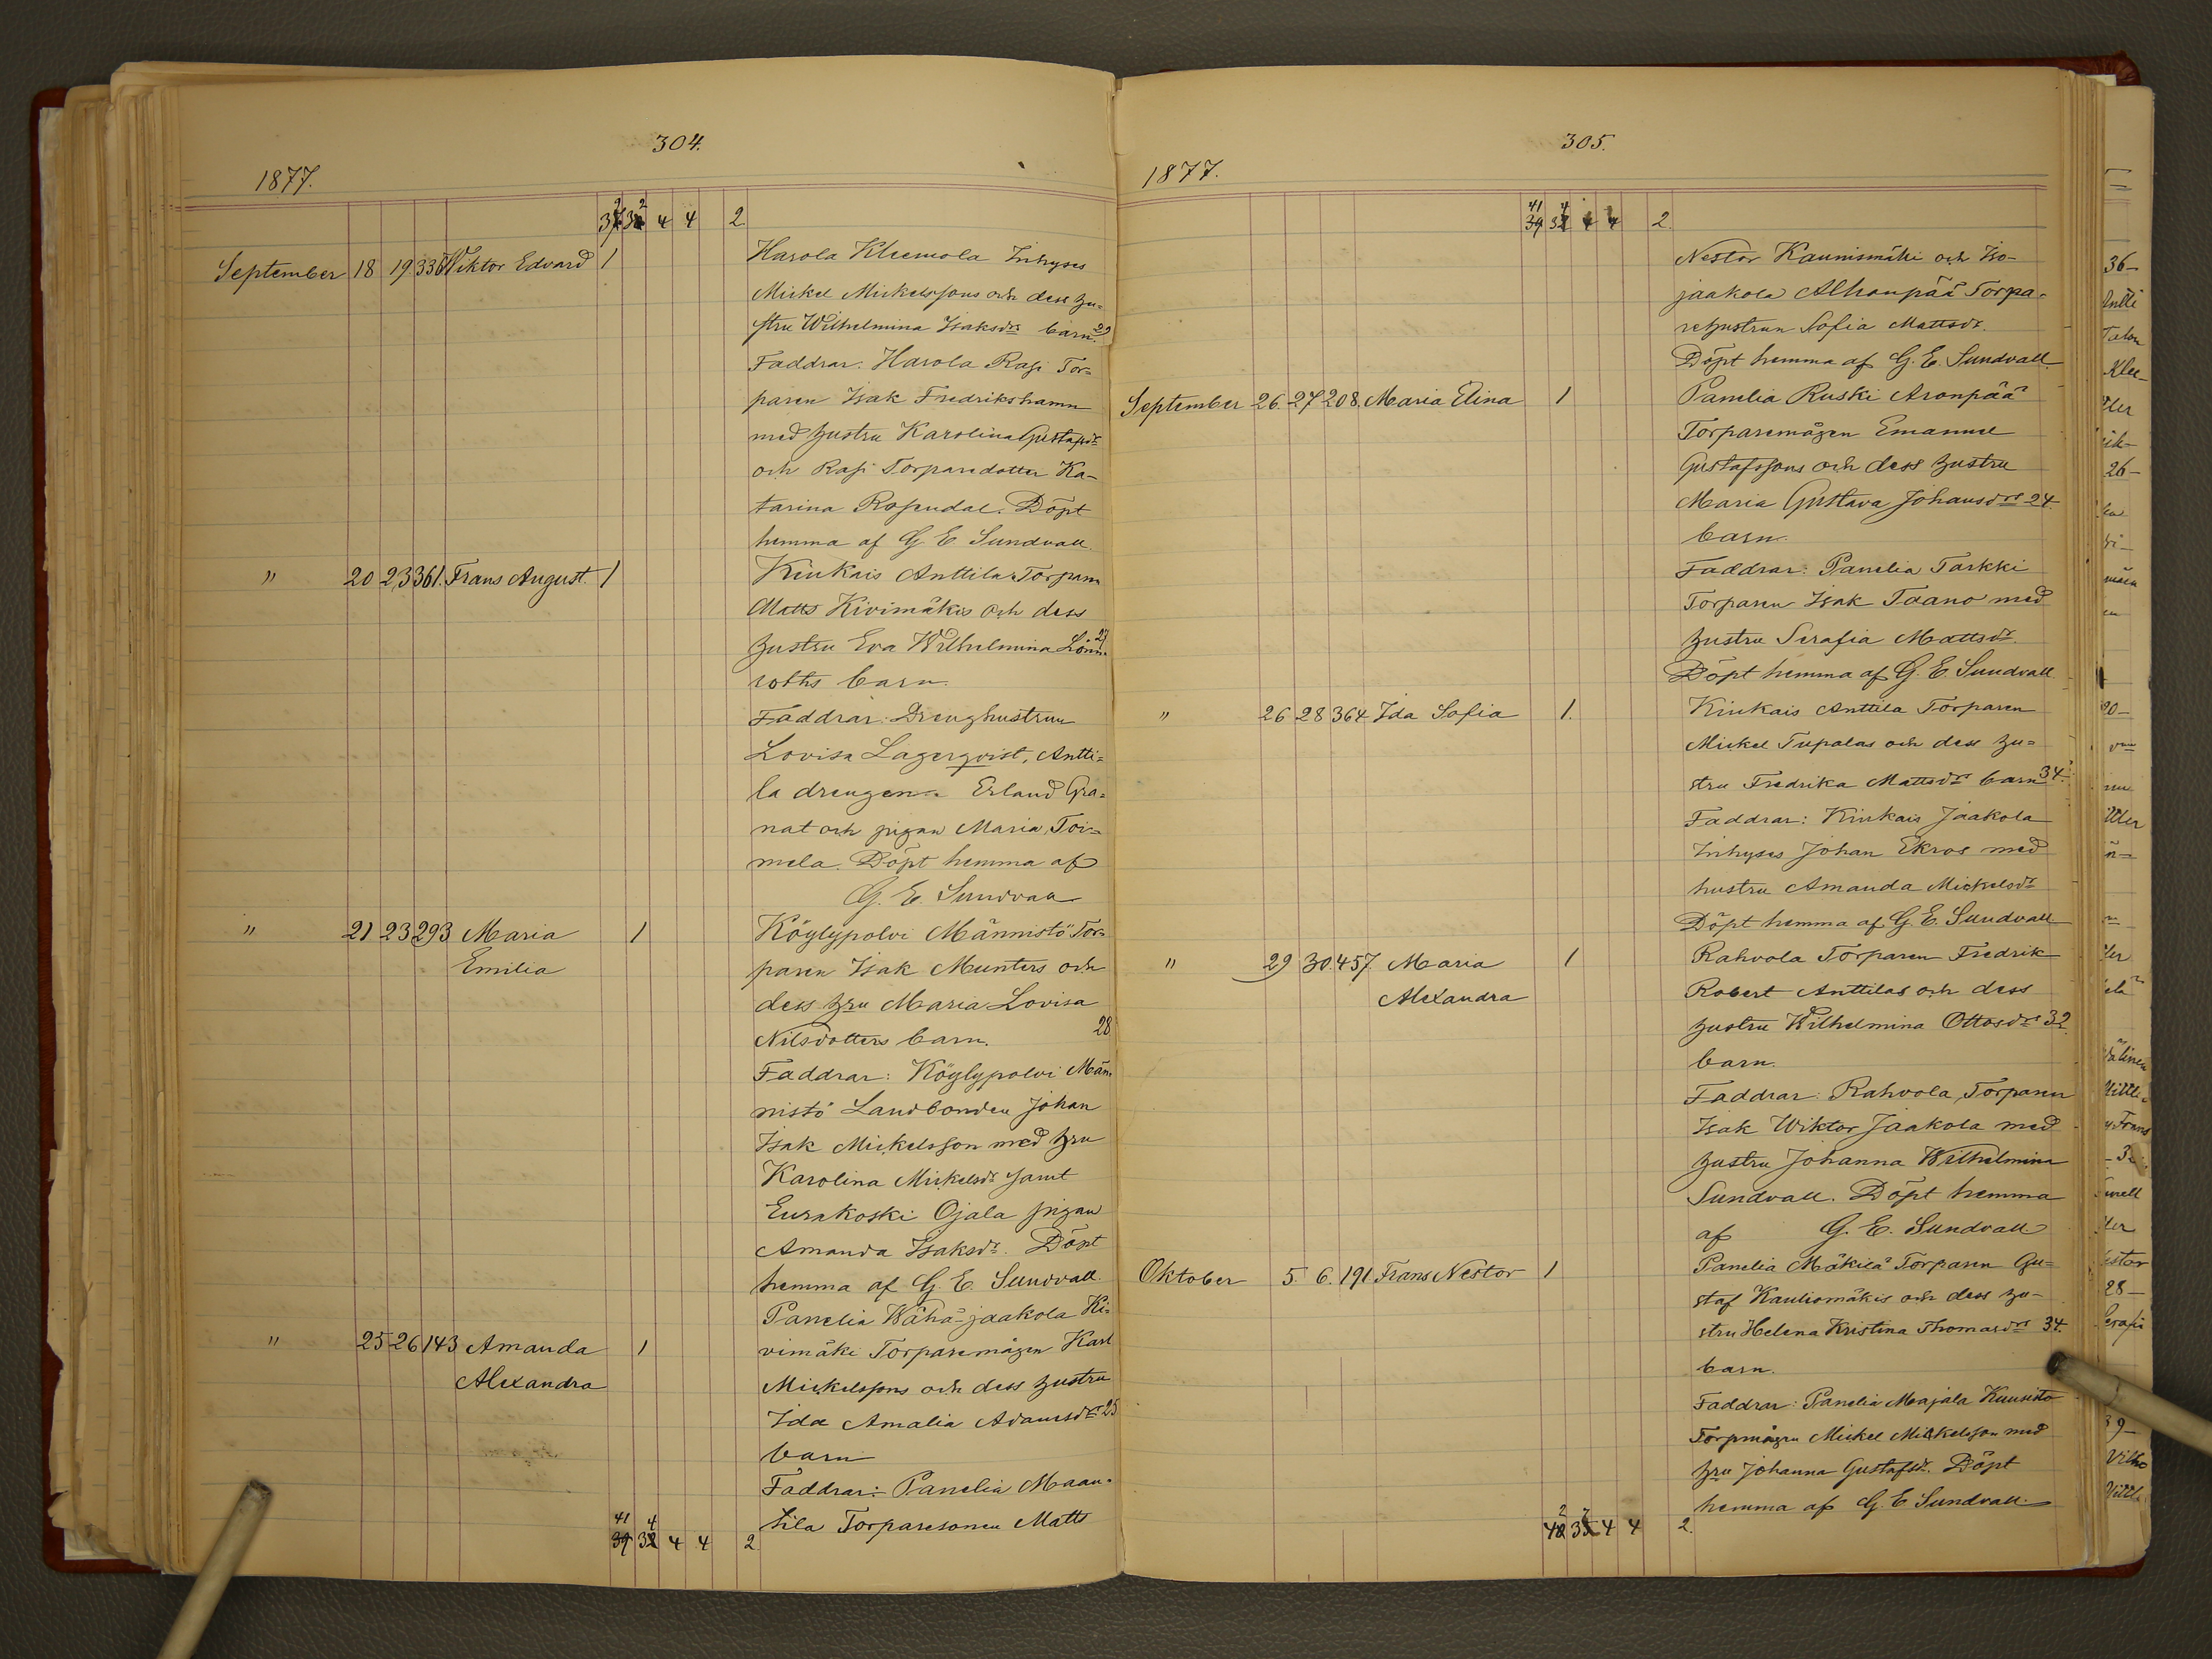 304.
1877.
37 2 32 2 4 4 2.
September 18 19 336 Viktor Edvard 1 Harola Kleemola Inhyses
Mickel Mickelssons och dess hu=
stru Wilhelmina Isaksdrs barn. 29
Faddrar: Harola Rasi Tor=
paren Isak Fredrikshamn
med hustru Karolina Gustafsdr
och Rasi Torparedotter Ka-
tarina Rosendal. Döpt
hemma af G. E. Sundvall.
" 20 23 361. Frans August. 1 Kiukais Anttila Torparn
Matts Kivimäkis och dess
hustru Eva Wilhelmina Lönn= 27
roths barn.
Faddrar: Drenghustrun
Lovisa Lagerqvist, Antti=
la drengen Erland Gra=
nat och pigan Maria Toi=
mela. Döpt hemma af
G. E. Sundvall
" 21 23 293 Maria 1 Köylypolvi Männistö Tor=
Emilia paren Isak Munters och
dess hru Maria Lovisa
Nilsdotters barn. 28
Faddrar: Köylypolvi Män=
nistö Landbonden Johan
Isak Mickelsson med hru
Karolina Mickelsdr samt
Eurakoski Ojala pigan
Amanda Isaksdr. Döpt
hemma af G. E. Sundvall.
Panelia Wähä-jaakola Ki=
" 25 26 143 Amanda 1 vimäki Torparemågen Karl
Alexandra Mickelssons och dess hustru
Ida Amalia Adamsdrs 25
barn
Faddrar: Panelia Maan=
tila Torparesonen Matts
39 41 32 4 4 4 2
305.
1877.
39 41 32 4 4 4 2.
Nestor Kaunismäki och Iso-
jaakola Alhonpää Torpa=
rehustrun Sofia Mattsdr.
Döpt hemma af G. E. Sundvall.
September 26. 27 208. Maria Elina 1 Panelia Ruski Aronpää
Torparemågen Emanuel
Gustafssons och dess hustru
Maria Gustava Johansdrs 24.
barn.
Faddrar: Panelia Tarkki
Torparen Isak Taano med
hustru Serafia Mattsdr.
Döpt hemma af G. E. Sundvall
" 26 28 364 Ida Sofia 1. Kiukais Anttila Torparen
Mickel Tupalas och dess hu=
stru Fredrika Mattsdrs barn 34.
Faddrar: Kiukais Jaakola
Inhyses Johan Ekros med
hustru Amanda Mickelsdr
Döpt hemma af G. E. Sundvall
" 29 30. 457. Maria 1 Rahvola Torparen Fredrik
Alexandra Robert Anttilas och dess
hustru Wilhelmina Ottosdrs 32.
barn.
Faddrar: Rahvola Torparen
Isak Wiktor Jaakola med
hustru Johanna Wilhelmina
Sundvall. Döpt hemma
af G. E. Sundvall.
Oktober 5. 6. 191. Frans Nestor 1 Panelia Mäkilä Torparen Gu=
staf Kauliomäkis och dess hu-
stru Helena Kristina Thomasdrs 34.
barn.
Faddrar: Panelia Majala Kuusisto
Torpmågen Mickel Mickelsson med
hru Johanna Gustafsdr. Döpt
hemma af G. E. Sundvall.
4 4 2.